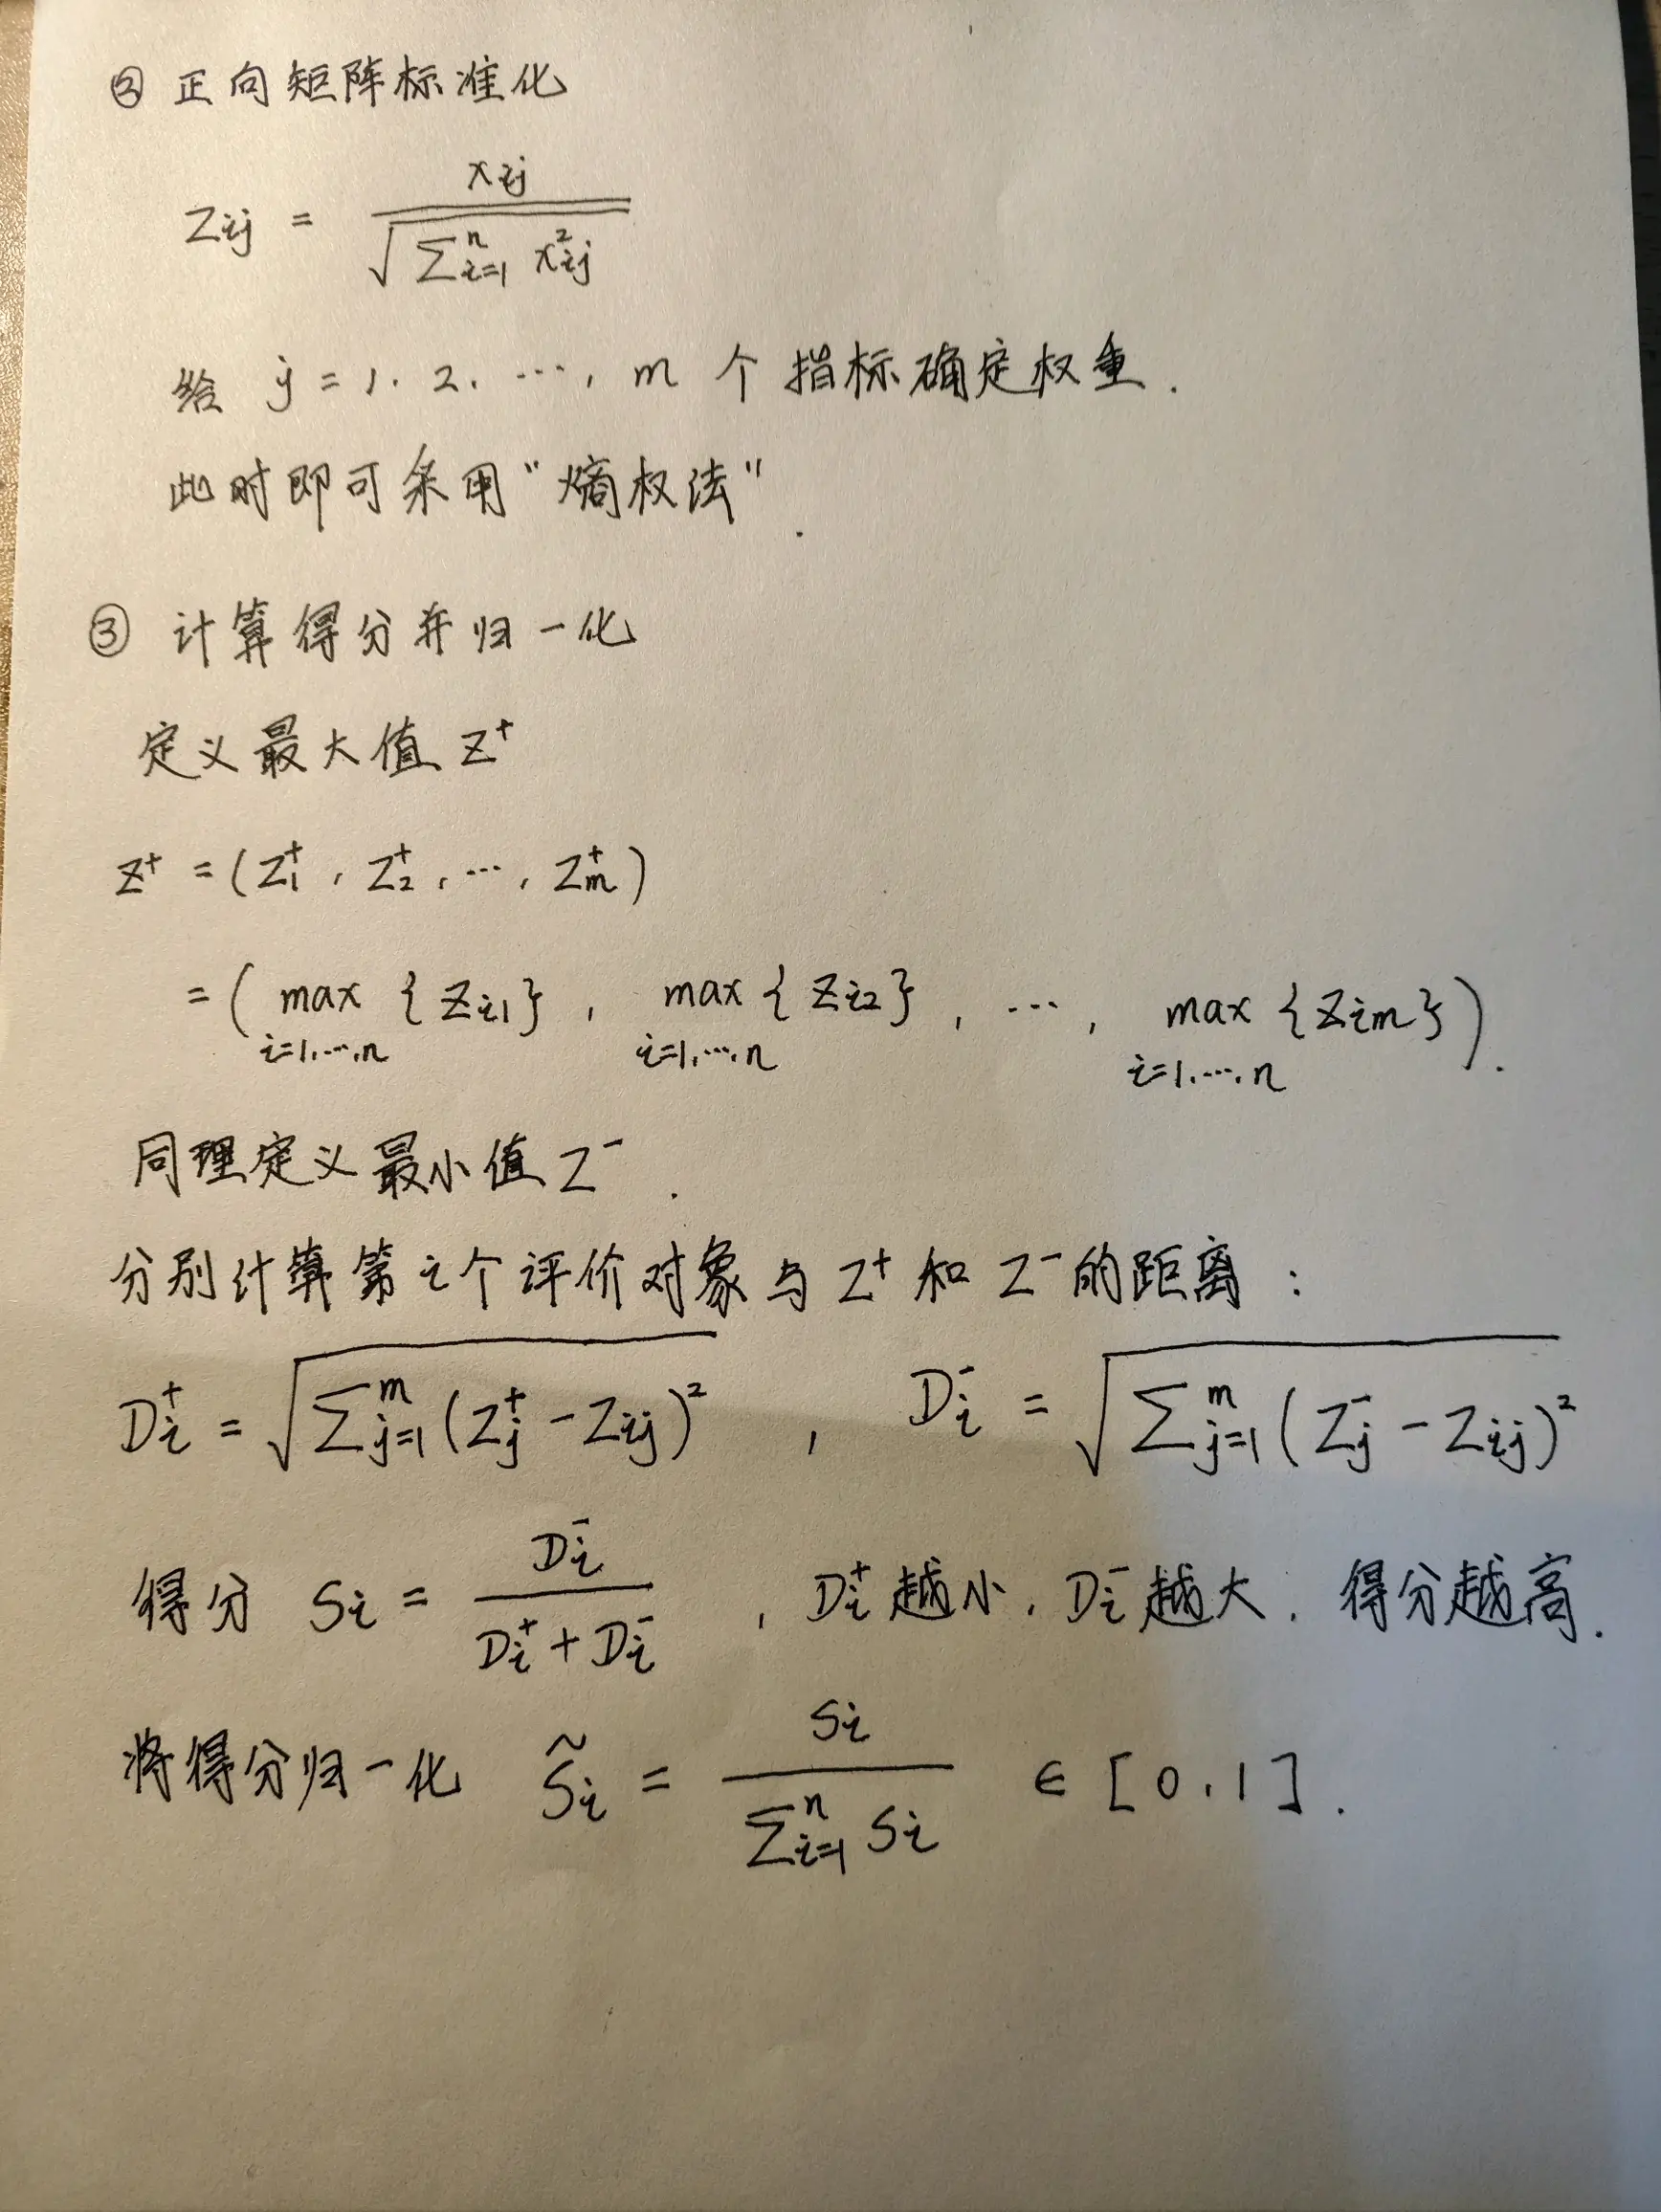 ② 正向矩阵标准化
Zij = xij / √(∑ⁿᵢ₌₁ x²ij)
给 j = 1. 2. ⋯, m 个指标确定权重.
此时即可采用“熵权法”.
③ 计算得分并归一化
定义最大值 Z⁺
Z⁺ = (Z₁⁺, Z₂⁺, ⋯, Zₘ⁺)
= (max {Zi1}, max {Zi2}, ⋯, max {Zim}).
i=1,⋯,n i=1,⋯,n i=1,⋯,n
同理定义最小值 Z⁻.
分别计算第 i 个评价对象与 Z⁺ 和 Z⁻ 的距离:
Dᵢ⁺ = √(∑ᵐⱼ₌₁ (Zⱼ⁺ - Zij)²), Dᵢ⁻ = √(∑ᵐⱼ₌₁ (Zⱼ⁻ - Zij)²)
得分 Si = Dᵢ⁻ / (Dᵢ⁺ + Dᵢ⁻), Dᵢ⁺ 越小, Dᵢ⁻ 越大, 得分越高.
将得分归一化 S̃i = Si / ∑ⁿᵢ₌₁ Si ∈ [0, 1].